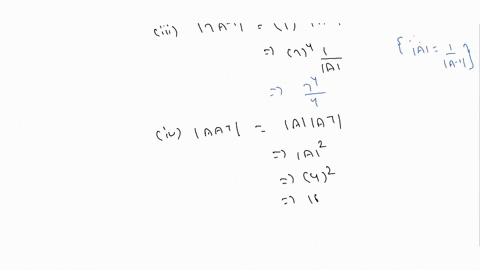 (iii) |7A⁻¹| = (7)
⇒ (7)⁴ 1/|A| { |A| = 1/|A⁻¹| }
⇒ 7⁴/4
(iv) |AAT| = |A||AT|
⇒ |A|²
⇒ (4)²
⇒ 16